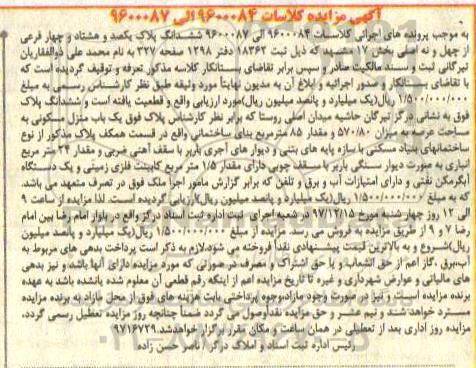 آگهی مزایده کلاسات ۹۶۰۰۰۸۴ الی ۹۶۰۰۰۸۷
به موجب پرونده های اجرائی کلاسات ۹۶۰۰۰۸۴ الی ۹۶۰۰۰۸۷ ششدانگ پلاک یکصد و هشتاد و چهار فرعی
از چهل و نه اصلی بخش ۱۷ مشهد که ذیل ثبت ۱۸۳۶۲ دفتر ۱۲۹۸ صفحه ۳۲۷ به نام محمد علی ذوالفقاریان
تیرگانی ثبت و سند مالکیت صادر و سپس برابر تقاضای بستانکار کلاسه مذکور تعرفه و توقیف گردیده است که
با تقاضای بستانکار و صدور اجرائیه و ابلاغ آن به مدیون نهایتا مورد وثیقه طبق نظر کارشناس رسمی به مبلغ
۱/۵۰۰/۰۰۰/۰۰۰ ریال(یک میلیارد و پانصد میلیون ریال)مورد ارزیابی واقع و قطعیت یافته است و ششدانگ پلاک
فوق به نشانی درگز تیرگان حاشیه میدان اصلی روستا که برابر نظر کارشناس پلاک فوق یک باب منزل مسکونی به
مساحت عرصه به میزان ۵۷۰/۸۰ و مقدار ۸۵ مترمربع بنای ساختمانی واقع در قسمت همکف پلاک مذکور از نوع
ساختمانهای بنیاد مسکنی با سازه پایه های بتنی و دیوار های آجری باربر با سقف آهنی ضربی و مقدار ۲۴ متر مربع
انباری به صورت دیوار سنگی باربر با سقف چوبی دارای مقدار ۱/۵ متر مربع کابینت فلزی زمینی و یک دستگاه
آبگرمکن نفتی و دارای امتیازات آب و برق و تلفن که برابر گزارش مامور اجرا ملک فوق در تصرف متعهد می باشد.
که به مبلغ ۱/۵۰۰/۰۰۰/۰۰۰ ریال(یک میلیارد و پانصد میلیون ریال)ارزیابی گردیده است. لذا مزایده از ساعت ۹
الی ۱۲ روز چهارشنبه مورخ ۹۷/۱۲/۱۵ در شعبه اجرای ثبت اداره ثبت اسناد درگز واقع در بلوار امام رضا بین امام
رضا ۷ و ۹ از طریق مزایده به فروش می رسد. مزایده از مبلغ ۱/۵۰۰/۰۰۰/۰۰۰ ریال(یک میلیارد و پانصد میلیون
ریال)شروع و به بالاترین قیمت پیشنهادی نقدا فروخته می شود.لازم به ذکر است پرداخت بدهی های مربوط به
آب،برق ،گاز اعم از حق انشعاب و یا حق اشتراک و مصرف در صورتی که مورد مزایده دارای آنها باشد و نیز بدهی
های مالیاتی و عوارض شهرداری و غیره تا تاریخ مزایده اعم از اینکه رقم قطعی آن معلوم شده یانشده باشد به عهده
برنده مزایده است و نیز در صورت وجود مازاد،وجوه پرداختی بابت هزینه های فوق از محل مازاد به برنده مزایده
مسترد خواهد شد و نیم عشر و حق مزایده نقداوصول می گردد ضمنا چنانچه روز مزایده تعطیل رسمی گردد،
مزایده روز اداری بعد از تعطیلی در همان ساعت و مکان مقرر برگزار خواهدشد.۹۷۱۶۷۲۹
رئیس اداره ثبت اسناد و املاک درگز ، ناصر حسن زاده